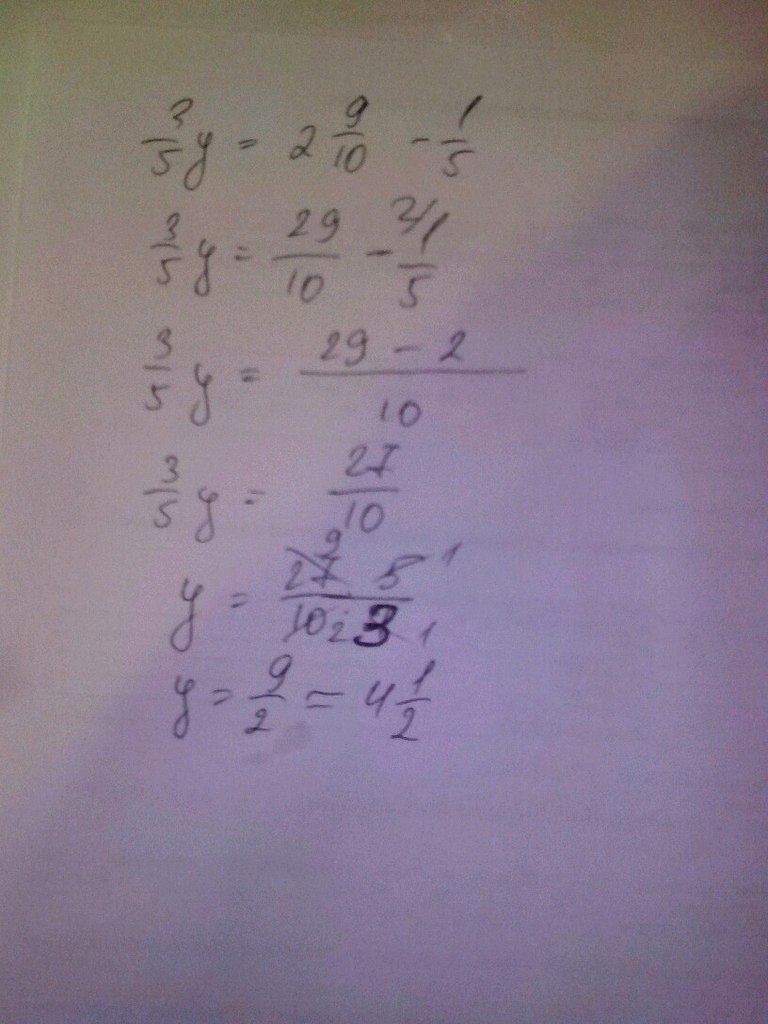 3/5 y = 2 9/10 - 1/5
3/5 y = 29/10 - 2/ 1/5
3/5 y = (29 - 2)/10
3/5 y = 27/10
y = (27 9 5 1)/(10 2 3 1)
y = 9/2 = 4 1/2